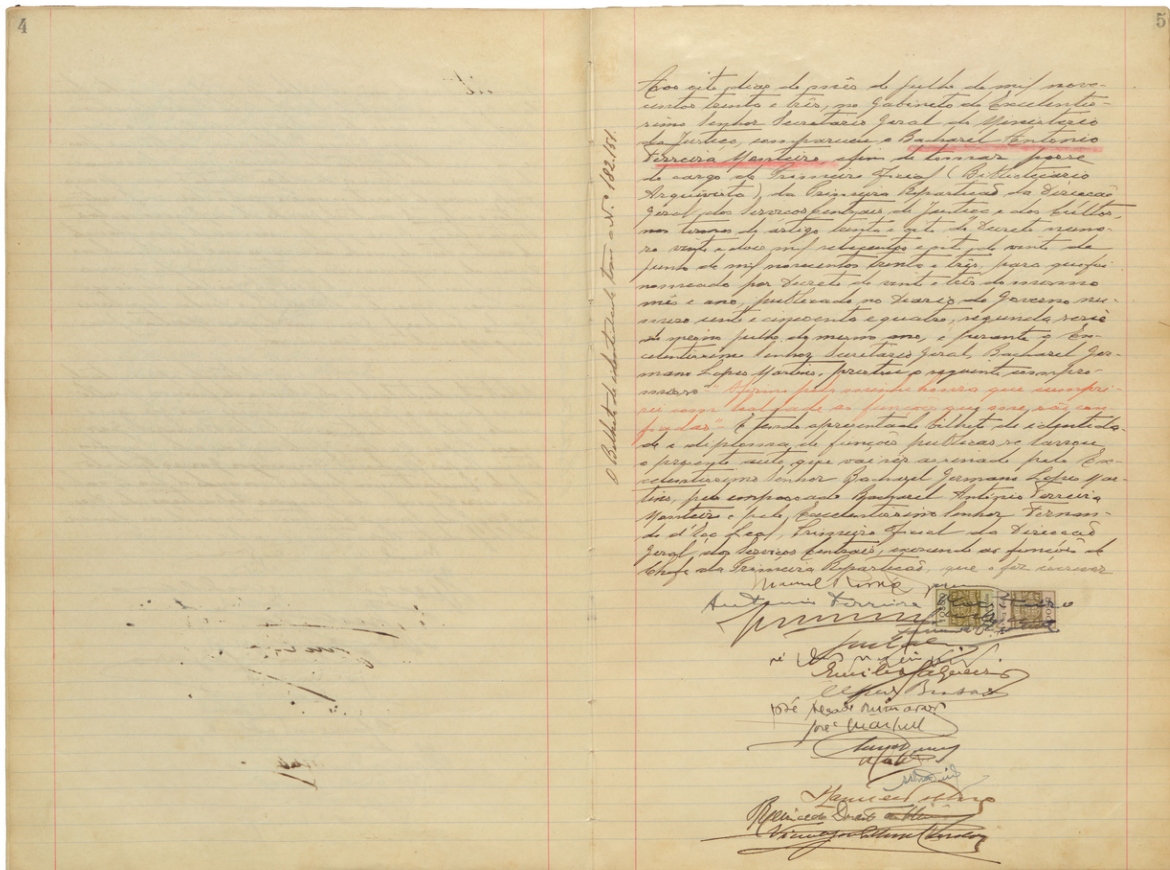 4
5
O Bilhete de identidade tem o Nº 182.151.
Aos oito dias do mês de Julho de mil nove-
centos trinta e três, no Gabinete do Excelentis-
simo Senhor Secretario Geral do Ministério
da Justiça, compareceu o Bacharel António
Ferreira Monteiro afim de tomar posse
do cargo de Primeiro Oficial (Bibliotecário
Arquivista) da Primeira Repartição da Direcção
Geral dos Serviços Centrais de Justiça e dos Cultos,
nos termos do artigo trinta e oito do Decreto nume-
ro vinte e dois mil setecentos e oito, de vinte de
Junho de mil novecentos trinta e três, para que foi
nomeado por Decreto de vinte e três do mesmo
mês e ano, publicado no Diario do Governo nu-
mero cento e cincoenta e quatro, segunda serie
de Julho do mesmo ano, e perante o Ex-
celentissimo Senhor Secretario Geral, Bacharel Ger-
mano Lopes Martins, prestou o seguinte compro-
misso: "Afirmo pela minha honra que cumpri-
rei com lealdade as funções que me são con-
fiadas". E tendo apresentado bilhete de identida-
de e diploma de funções publicas, se lavrou
o presente auto, que vai ser assinado pelo Ex-
celentissimo Senhor Bacharel Germano Lopes Mar-
tins, pelo empossado Bacharel António Ferreira
Monteiro e pelo Excelentissimo Senhor Fernan-
do d'Eça Leal, Primeiro Oficial da Direcção
Geral dos Serviços Centrais, exercendo as funções de
Chefe da Primeira Repartição, que o fez escrever
António Ferreira Monteiro
José
José